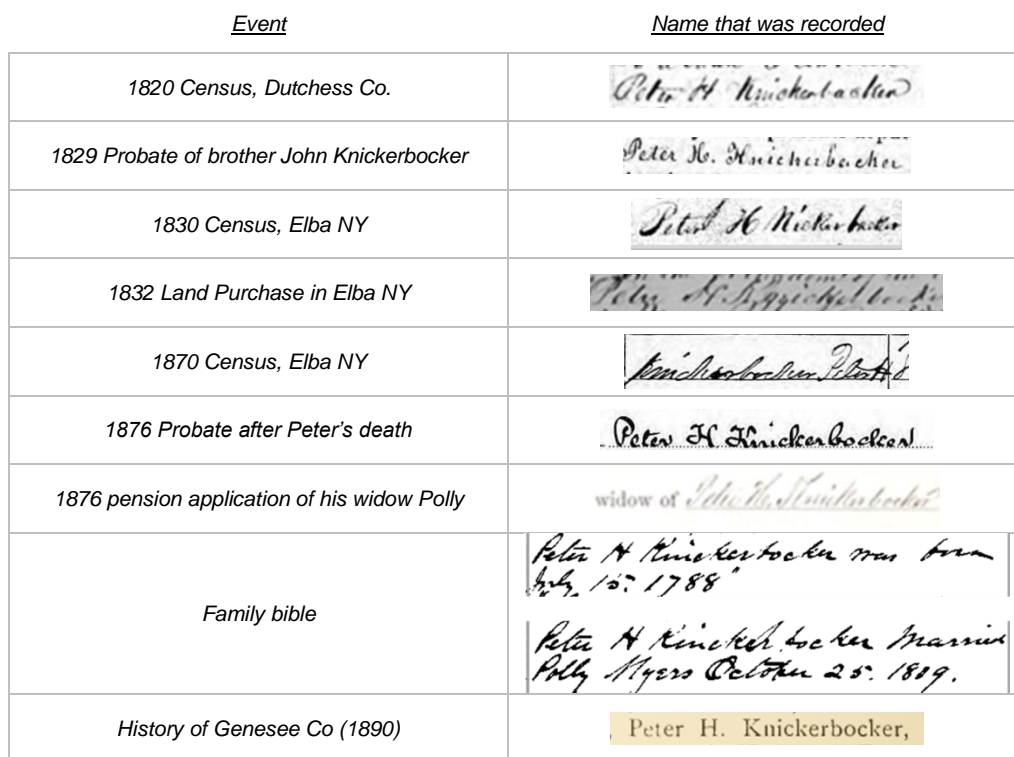 Event Name that was recorded
1820 Census, Dutchess Co. Peter H Knickerbacker
1829 Probate of brother John Knickerbocker Peter H. Knickerbacker
1830 Census, Elba NY Peter H Nickerbacker
1832 Land Purchase in Elba NY Peter H
1870 Census, Elba NY Knickerbocker Peter H
1876 Probate after Peter's death Peter H Knickerbocker
1876 pension application of his widow Polly widow of Peter H. Knickerbocker
Family bible
Peter H Knickerbocker was born
July 15. 1788"
Peter H Kinckerbocker Married
Polly Myers October 25. 1809.
History of Genesee Co (1890) Peter H. Knickerbocker,